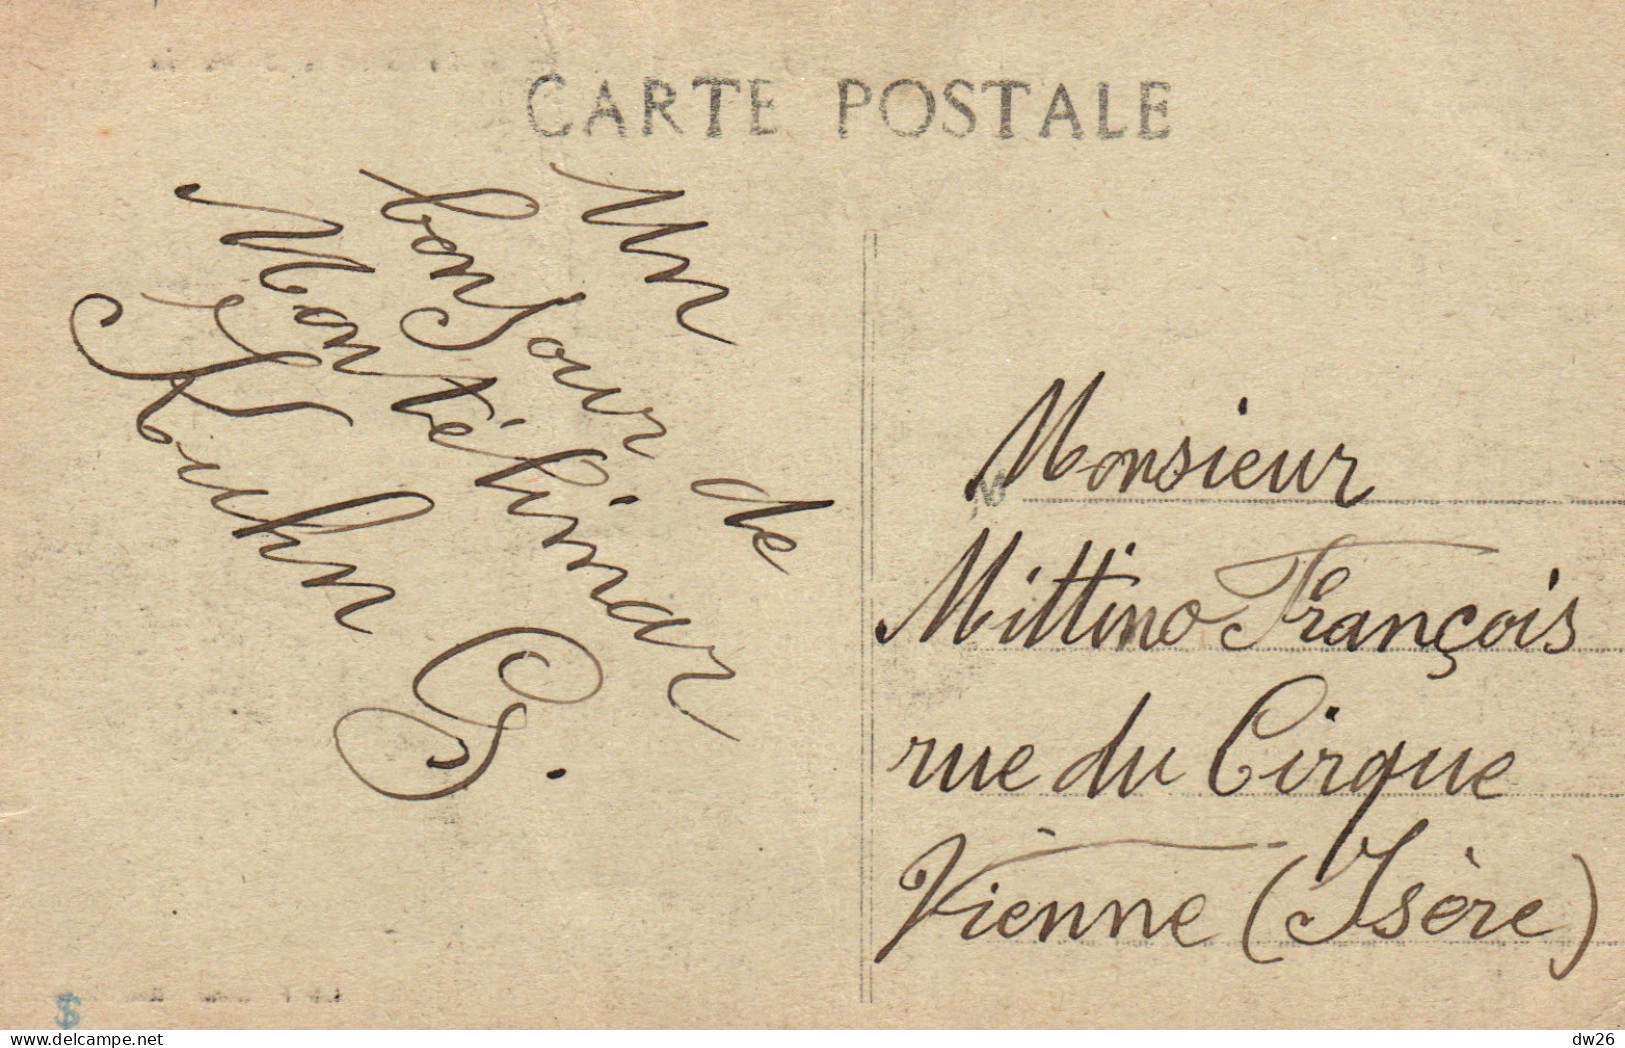 CARTE POSTALE
Un
bonjour de
Montélimar
Kuhn
G.
Monsieur
Mittino François
rue du Cirque
Vienne (Isère)
delcampe.net
dw26